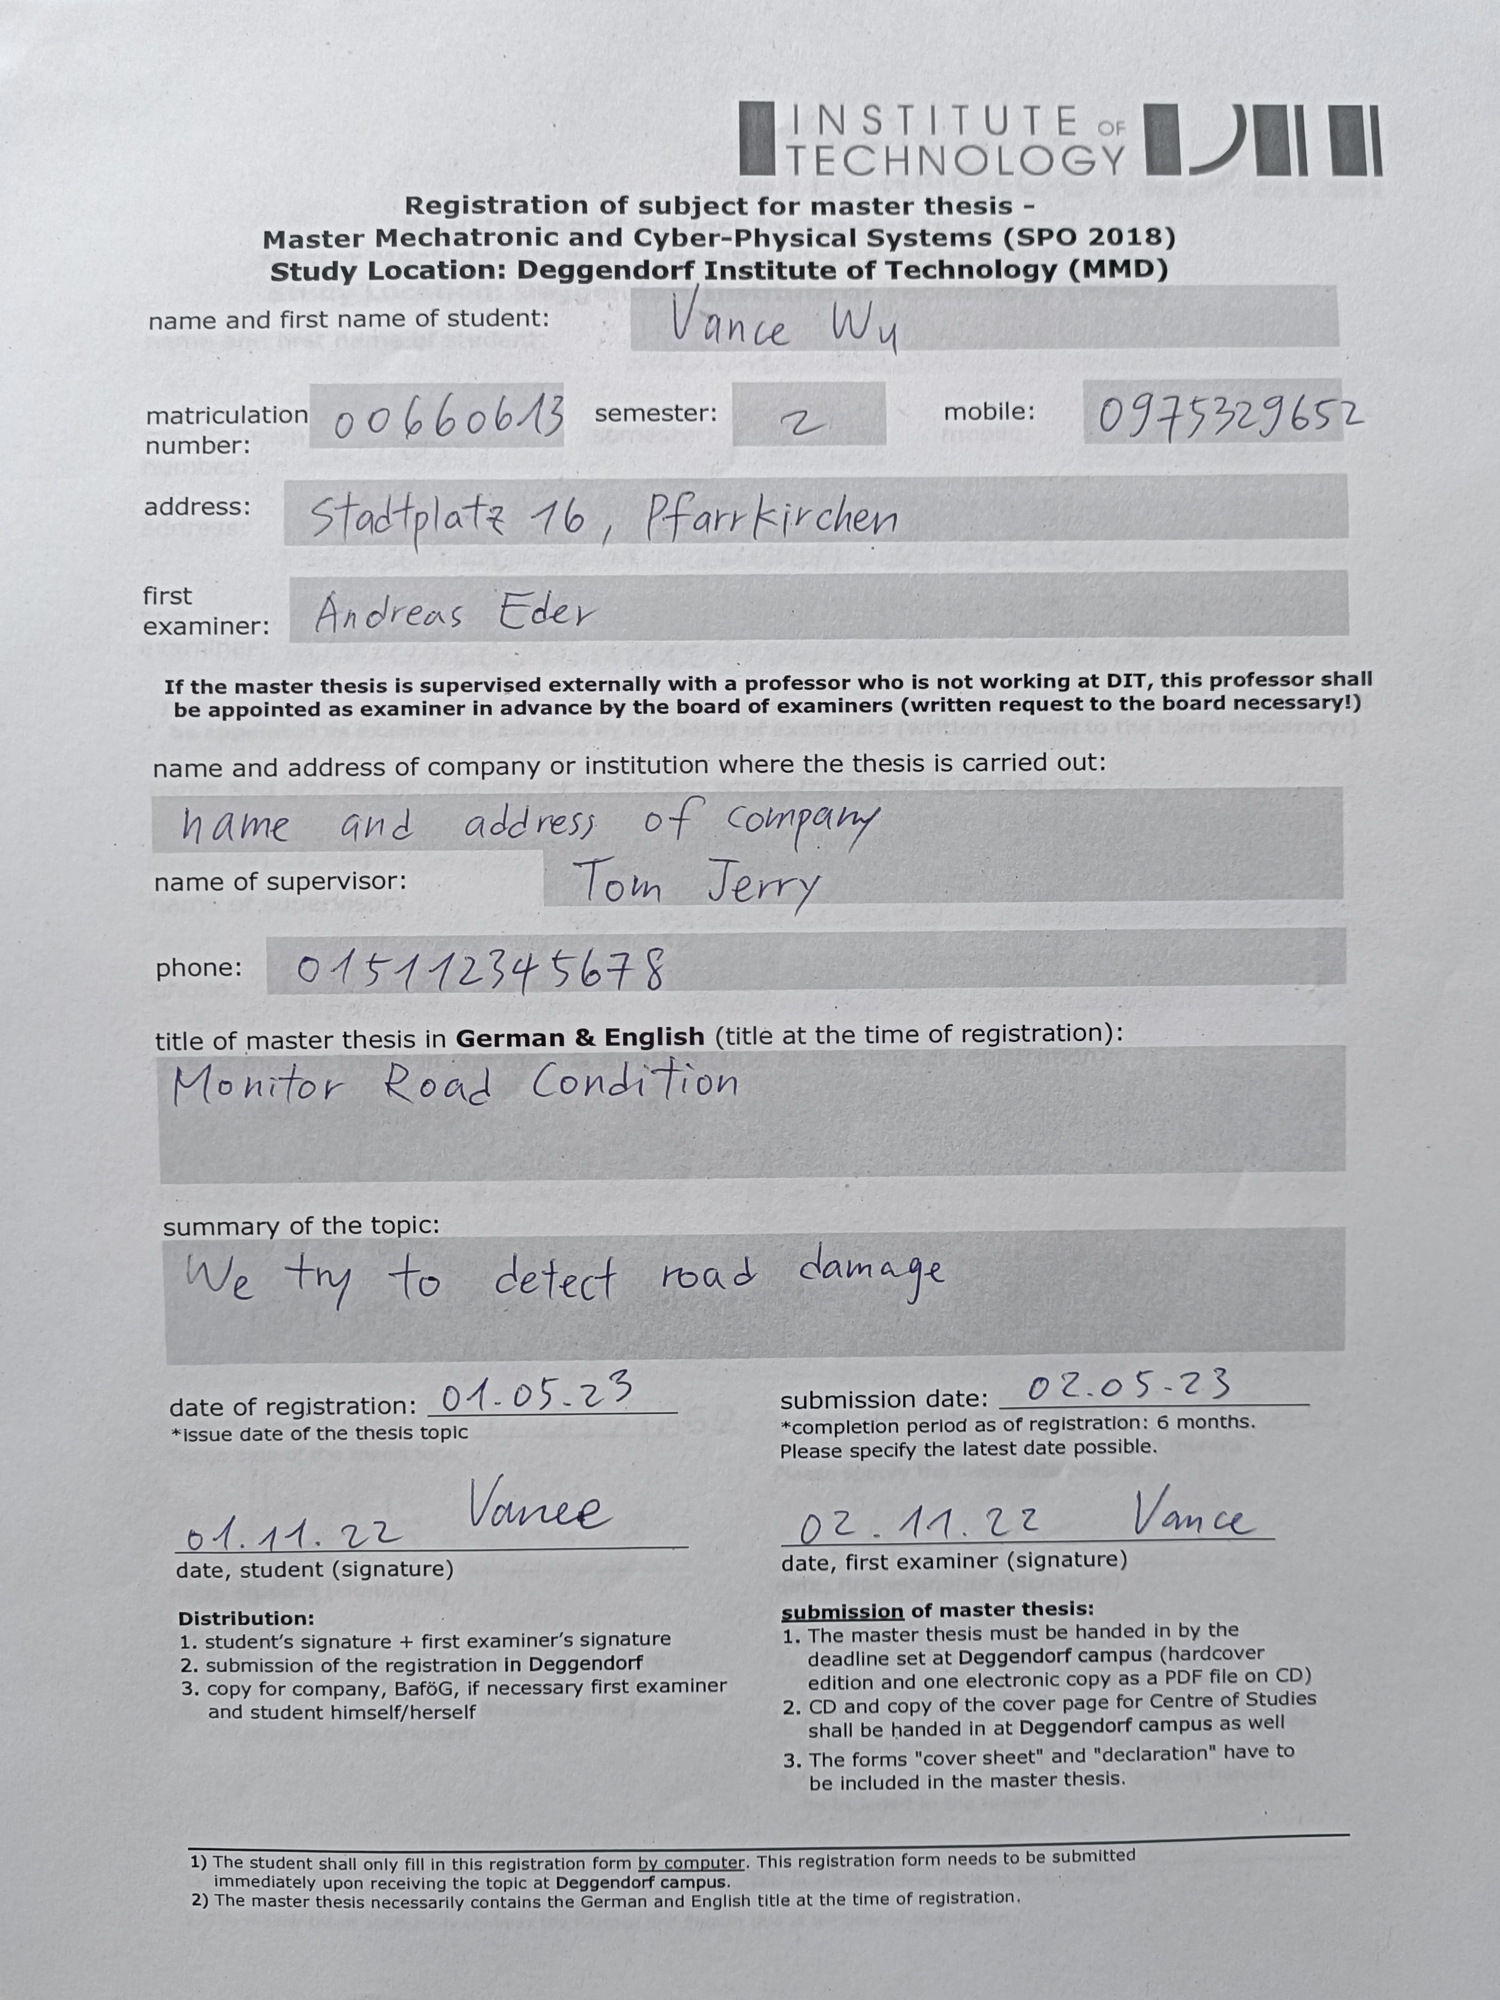 INSTITUTE OF
TECHNOLOGY
Registration of subject for master thesis -
Master Mechatronic and Cyber-Physical Systems (SPO 2018)
Study Location: Deggendorf Institute of Technology (MMD)
name and first name of student: Vance Wu
matriculation number: 00660613 semester: 2 mobile: 0975329652
address: Stadtplatz 16, Pfarrkirchen
first examiner: Andreas Eder
If the master thesis is supervised externally with a professor who is not working at DIT, this professor shall
be appointed as examiner in advance by the board of examiners (written request to the board necessary!)
name and address of company or institution where the thesis is carried out:
name and address of company
name of supervisor: Tom Jerry
phone: 015112345678
title of master thesis in German & English (title at the time of registration):
Monitor Road Condition
summary of the topic:
We try to detect road damage
date of registration: 01.05.23
*issue date of the thesis topic
submission date: 02.05.23
*completion period as of registration: 6 months.
Please specify the latest date possible.
01.11.22 Vance
date, student (signature)
02.11.22 Vance
date, first examiner (signature)
Distribution:
1. student's signature + first examiner's signature
2. submission of the registration in Deggendorf
3. copy for company, BaföG, if necessary first examiner
and student himself/herself
submission of master thesis:
1. The master thesis must be handed in by the
deadline set at Deggendorf campus (hardcover
edition and one electronic copy as a PDF file on CD)
2. CD and copy of the cover page for Centre of Studies
shall be handed in at Deggendorf campus as well
3. The forms "cover sheet" and "declaration" have to
be included in the master thesis.
1) The student shall only fill in this registration form by computer. This registration form needs to be submitted
immediately upon receiving the topic at Deggendorf campus.
2) The master thesis necessarily contains the German and English title at the time of registration.